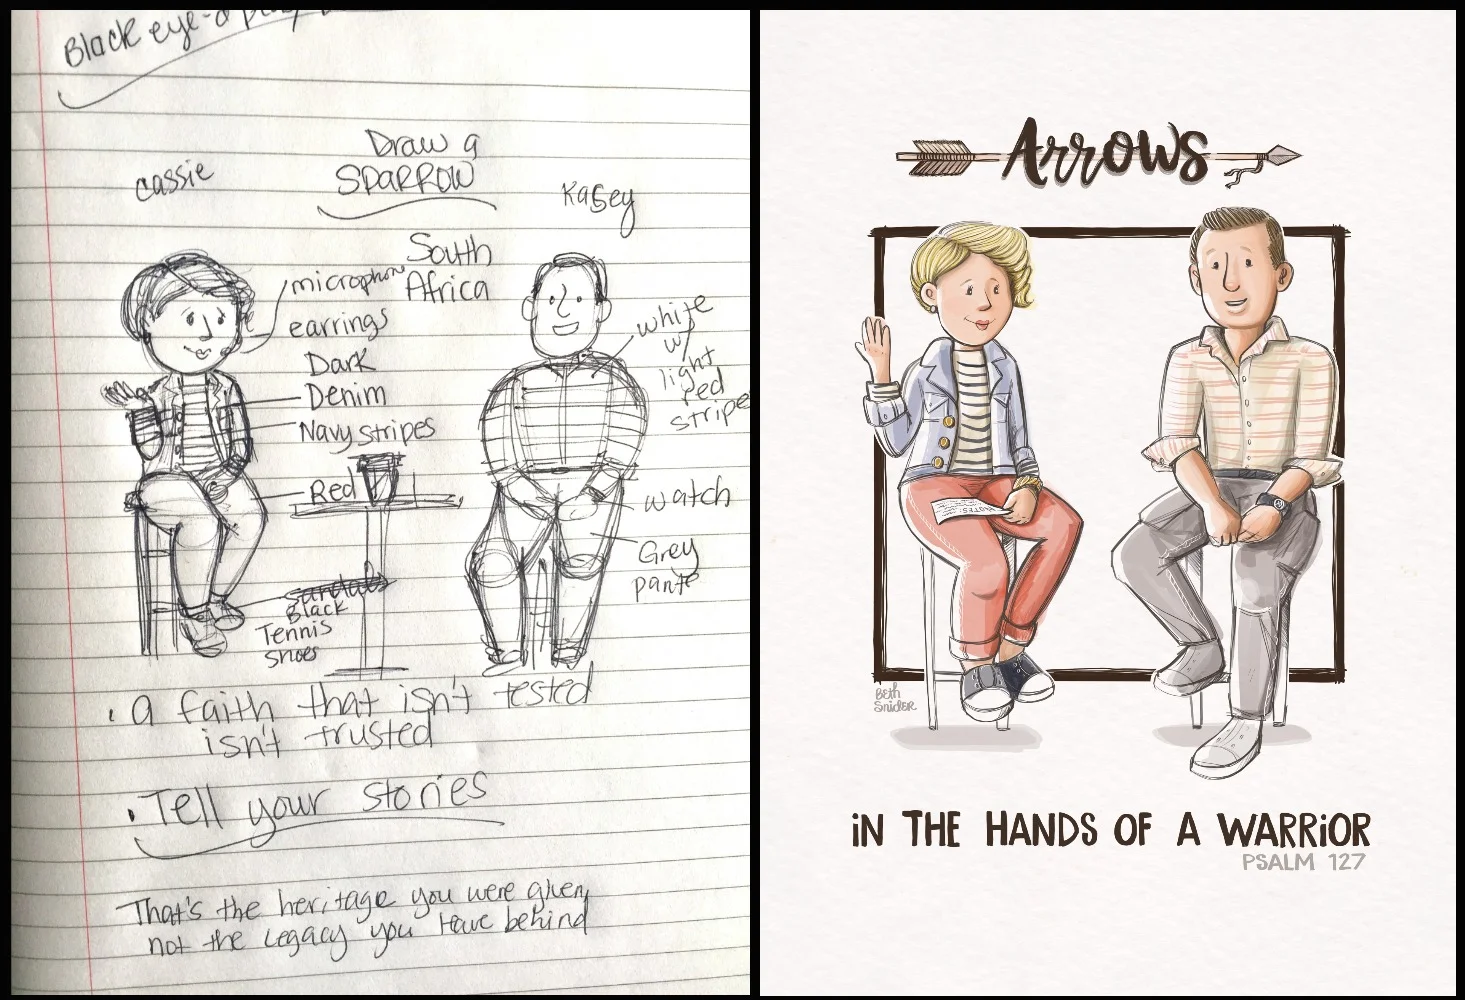 Black eye-d
Draw a
SPARROW
Cassie
Kasey
South
Africa
microphone
earrings
Dark
Denim
Navy stripes
Red
white
w/
light
red
stripe
watch
Grey
pants
sandals
Black
Tennis
Shoes
• a faith that isn't tested
isn't trusted
• Tell your stories
That's the heritage you were given,
not the legacy you leave behind
Arrows
NOTES:
BETH
SNIDER
iN THE HANDS OF A WARRiOR
PSALM 127